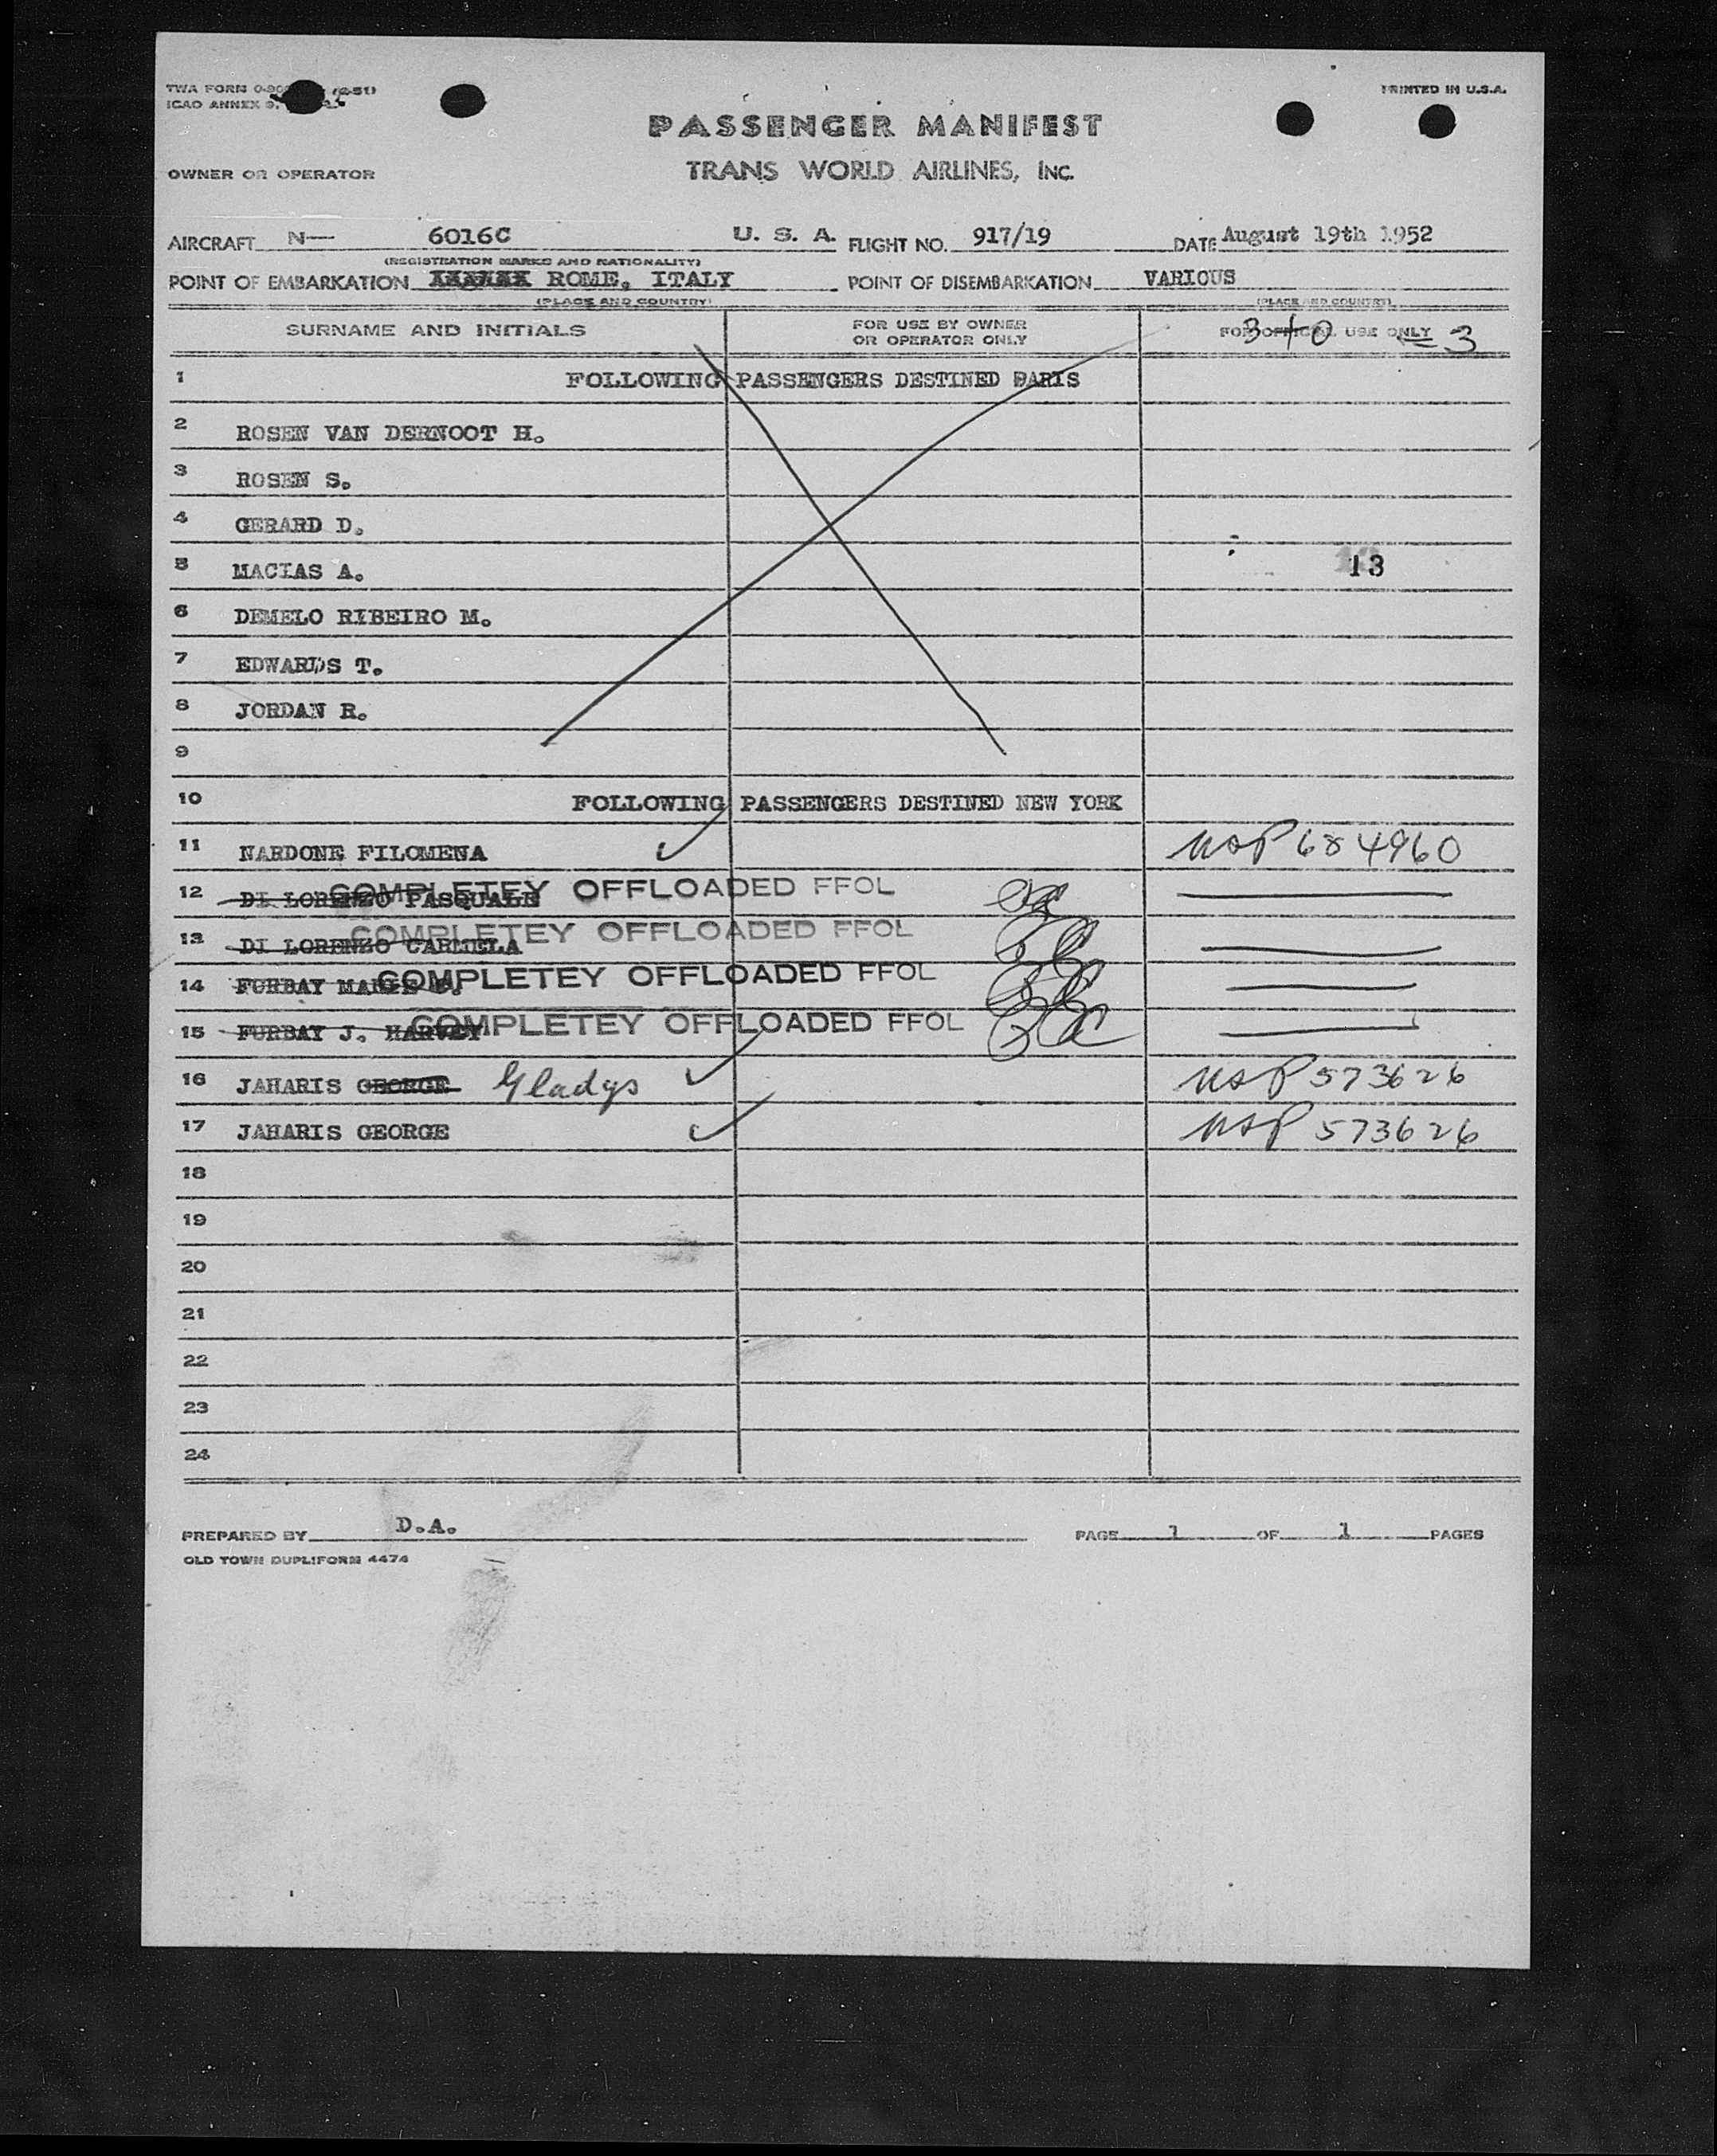 TWA FORM (2-51)
ICAO ANNEX 9,
PRINTED IN U.S.A.
PASSENGER MANIFEST
OWNER OR OPERATOR
TRANS WORLD AIRLINES, INC.
AIRCRAFT N— 6016C U. S. A. FLIGHT NO. 917/19 DATE August 19th 1952
(REGISTRATION MARKS AND NATIONALITY)
POINT OF EMBARKATION ROME, ITALY POINT OF DISEMBARKATION VARIOUS
(PLACE AND COUNTRY) (PLACE AND COUNTRY)
SURNAME AND INITIALS FOR USE BY OWNER OR OPERATOR ONLY FOR OFFICIAL USE ONLY 3 + 0 = 3
1 FOLLOWING PASSENGERS DESTINED PARIS
2 ROSEN VAN DERNOOT H.
3 ROSEN S.
4 GERARD D.
5 MACIAS A. 13
6 DEMELO RIBEIRO M.
7 EDWARDS T.
8 JORDAN R.
9
10 FOLLOWING PASSENGERS DESTINED NEW YORK
11 NARDONE FILOMENA USP 684960
12 DI LORENZO PASQUALE COMPLETEY OFFLOADED FFOL
13 DI LORENZO CARMELA COMPLETEY OFFLOADED FFOL
14 FURBAY COMPLETEY OFFLOADED FFOL
15 FURBAY J. HARVEY COMPLETEY OFFLOADED FFOL
16 JAHARIS GEORGE Gladys USP 573626
17 JAHARIS GEORGE USP 573626
18
19
20
21
22
23
24
PREPARED BY D.A. PAGE 1 OF 1 PAGES
OLD TOWN DUPLIFORM 4474